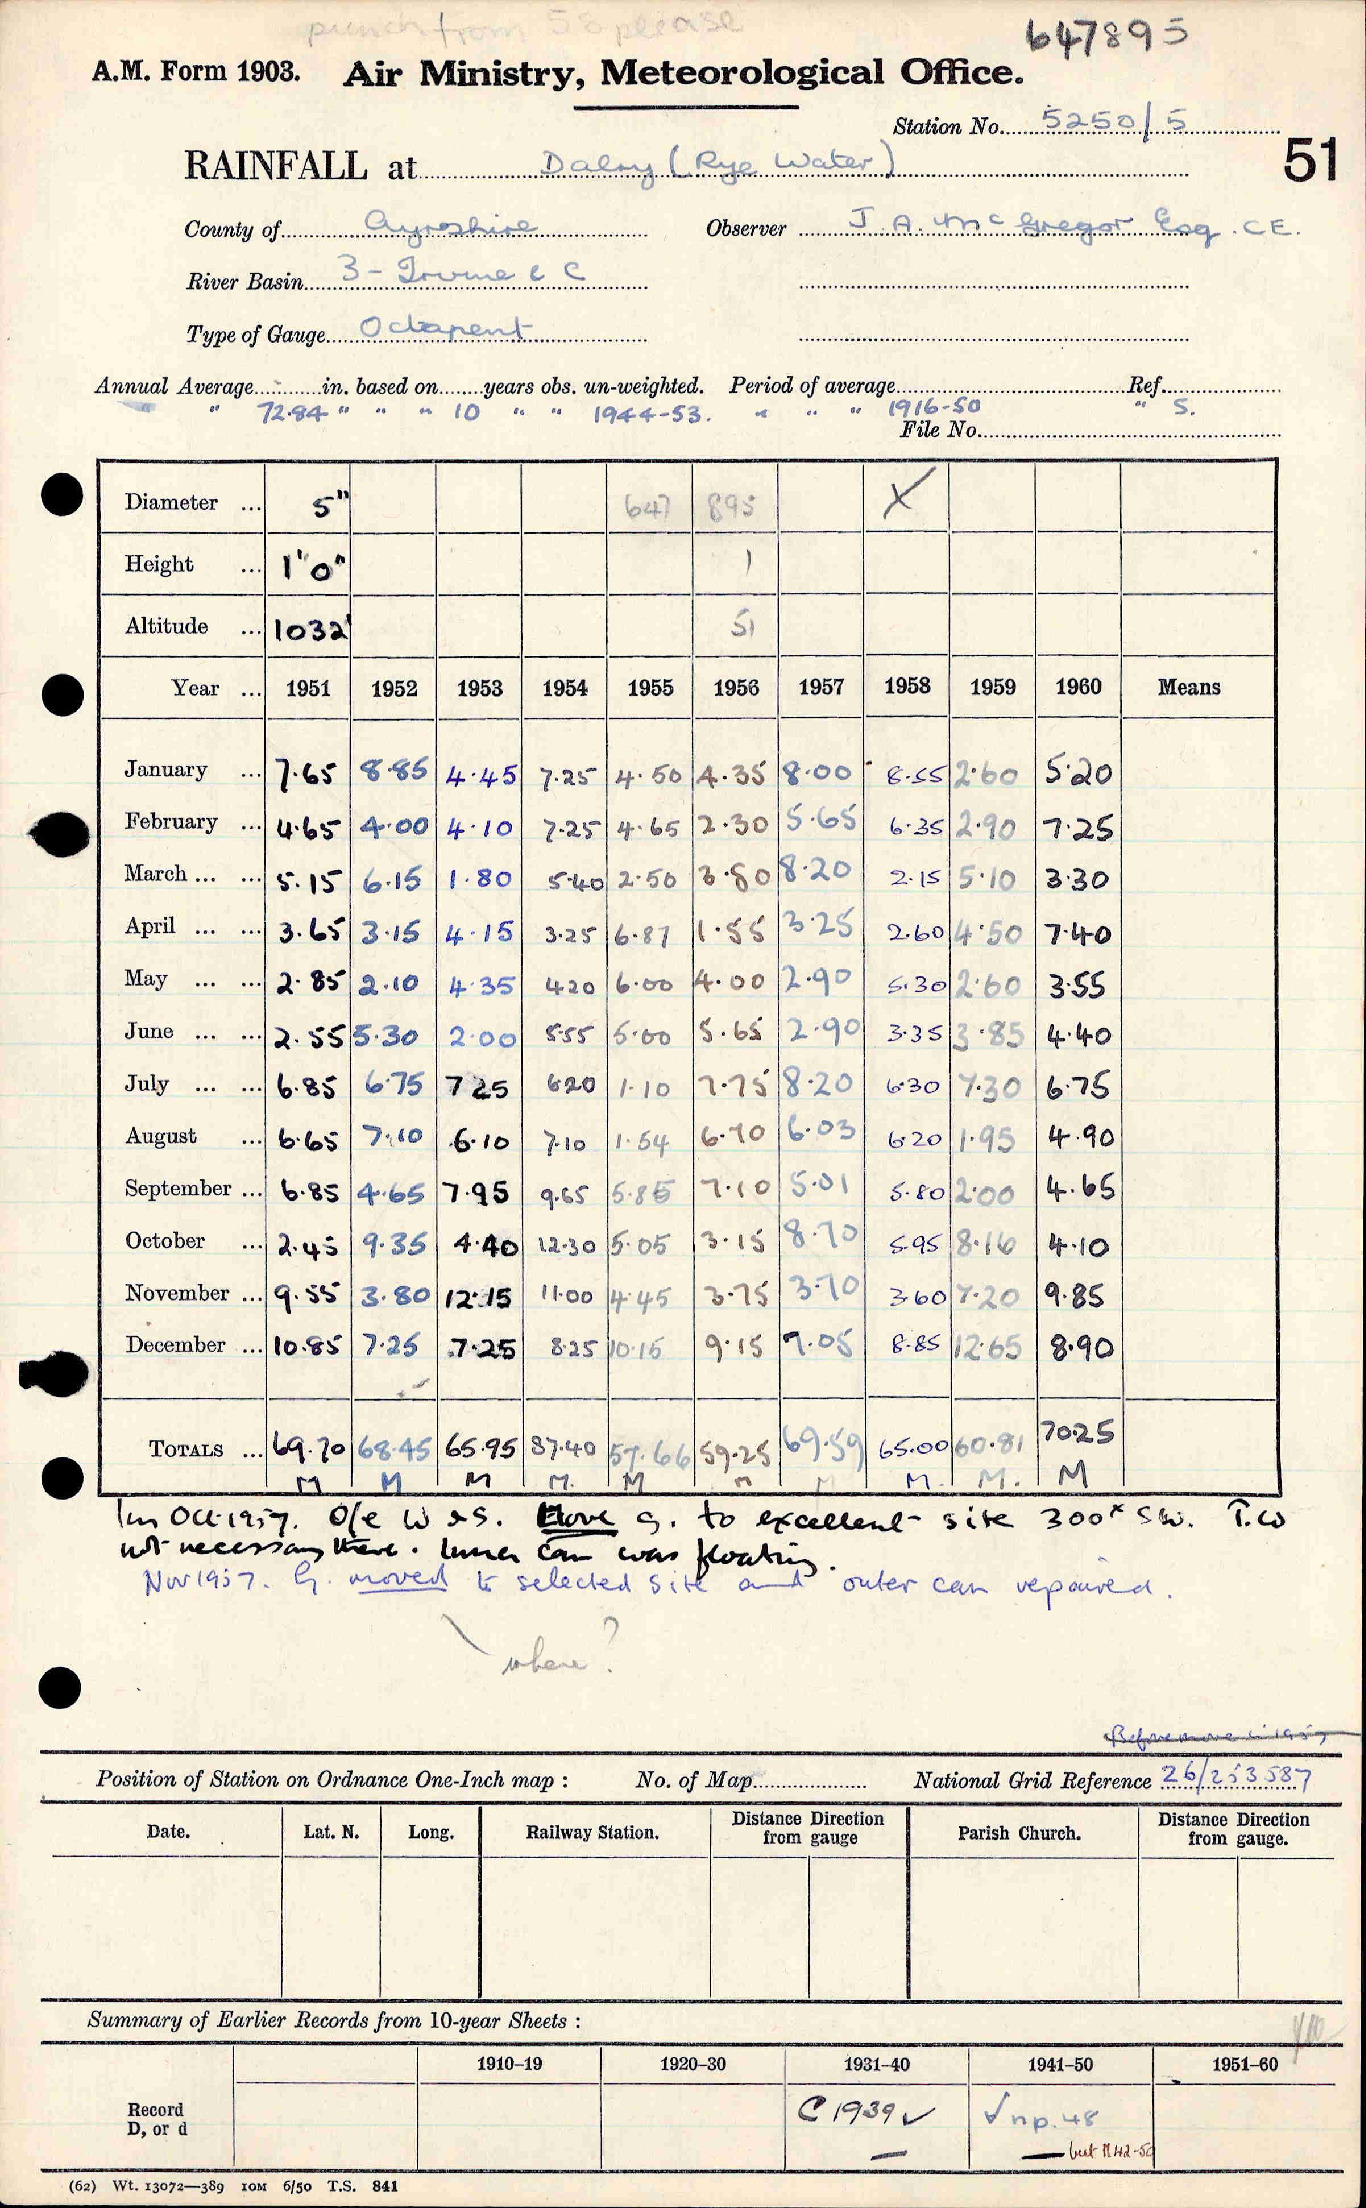 punch from 58 please
647895
A.M. Form 1903. Air Ministry, Meteorological Office.
Station No. 5250/5
51
RAINFALL at Dalry (Rye Water)
County of Ayrshire Observer J. A. McGregor Esq. C.E.
River Basin 3 - Irvine & C
Type of Gauge Octapent
Annual Average in. based on years obs. un-weighted. Period of average Ref.
" " 72.84 " " " 10 " " 1944-53. " " " 1916-50 " S.
File No.
Diameter ... 5" 647 895 X
Height ... 1'0" 1
Altitude ... 1032' 51
Year ... 1951 1952 1953 1954 1955 1956 1957 1958 1959 1960 Means
January ... 7.65 8.85 4.45 7.25 4.50 4.35 8.00 8.55 2.60 5.20
February ... 4.65 4.00 4.10 7.25 4.65 2.30 5.65 6.35 2.90 7.25
March ... ... 5.15 6.15 1.80 5.40 2.50 3.80 8.20 2.15 5.10 3.30
April ... ... 3.65 3.15 4.15 3.25 6.87 1.55 3.25 2.60 4.50 7.40
May ... ... 2.85 2.10 4.35 4.20 6.00 4.00 2.90 5.30 2.60 3.55
June ... ... 2.55 5.30 2.00 5.55 5.00 5.65 2.90 3.35 3.85 4.40
July ... ... 6.85 6.75 7.25 6.20 1.10 7.75 8.20 6.30 7.30 6.75
August ... 6.65 7.10 6.10 7.10 1.54 6.70 6.03 6.20 1.95 4.90
September ... 6.85 4.65 7.95 9.65 5.85 7.10 5.01 5.80 2.00 4.65
October ... 2.45 9.35 4.40 12.30 5.05 3.15 8.70 5.95 8.16 4.10
November ... 9.55 3.80 12.15 11.00 4.45 3.75 3.70 3.60 7.20 9.85
December ... 10.85 7.25 7.25 8.25 10.15 9.15 7.05 8.85 12.65 8.90
TOTALS ... 69.70 68.45 65.95 87.40 57.66 59.25 69.59 65.00 60.81 70.25
M M M M. M M M M. M. M
Im Oct 1957. O/e W & S. Move g. to excellent site 300x SW. T.W
not necessary there. Inner can was floating.
Nov 1957. G. moved to selected site and outer can repaired.
where?
Before move in 1957
Position of Station on Ordnance One-Inch map : No. of Map National Grid Reference 26/253587
Date. Lat. N. Long. Railway Station. Distance from gauge Direction Parish Church. Distance from gauge. Direction
Summary of Earlier Records from 10-year Sheets :
1910-19 1920-30 1931-40 1941-50 1951-60
Record D, or d C 1939 ✓ √ n p. 48
but M 42-50
(62) Wt. 13072—389 10M 6/50 T.S. 841